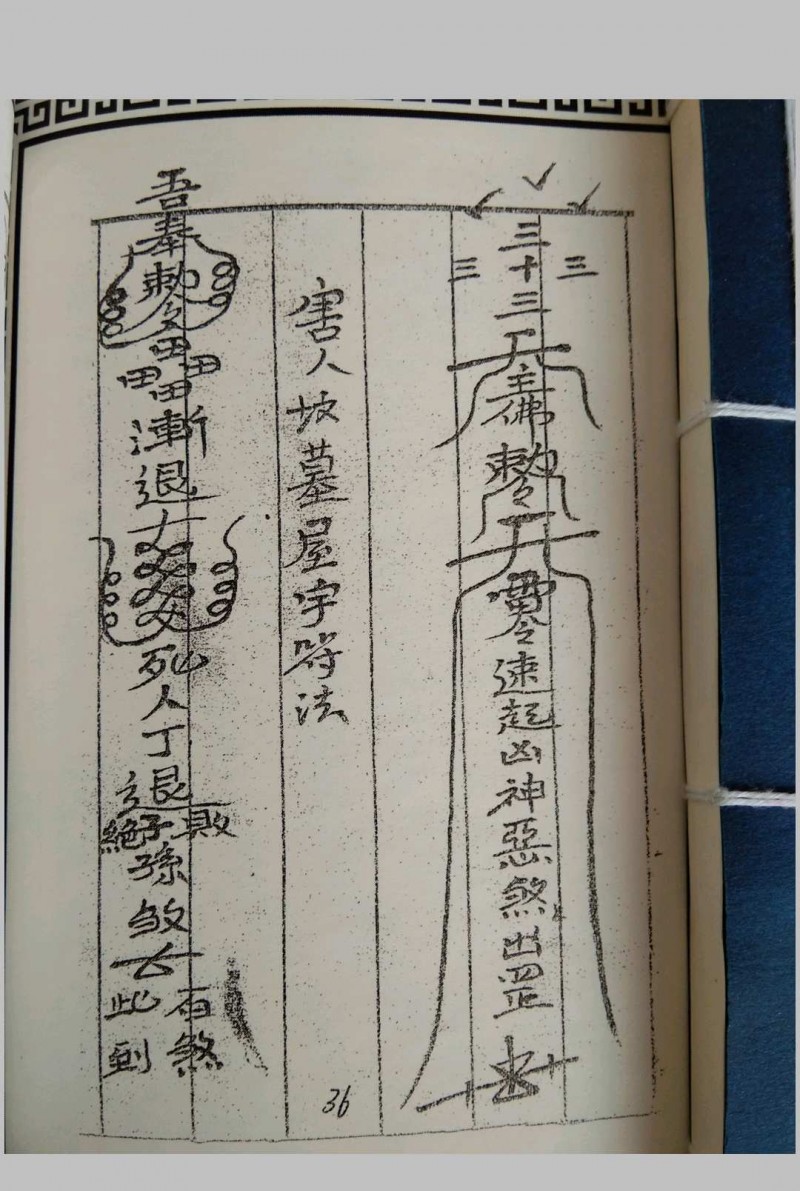 三
三十三
三
主佛
敕令
靈速起凶神惡煞出
害人坟墓屋字符法
吾奉敕令
田田
田田
漸退
女
死人丁退敗
絕子孫
此到
石煞
36